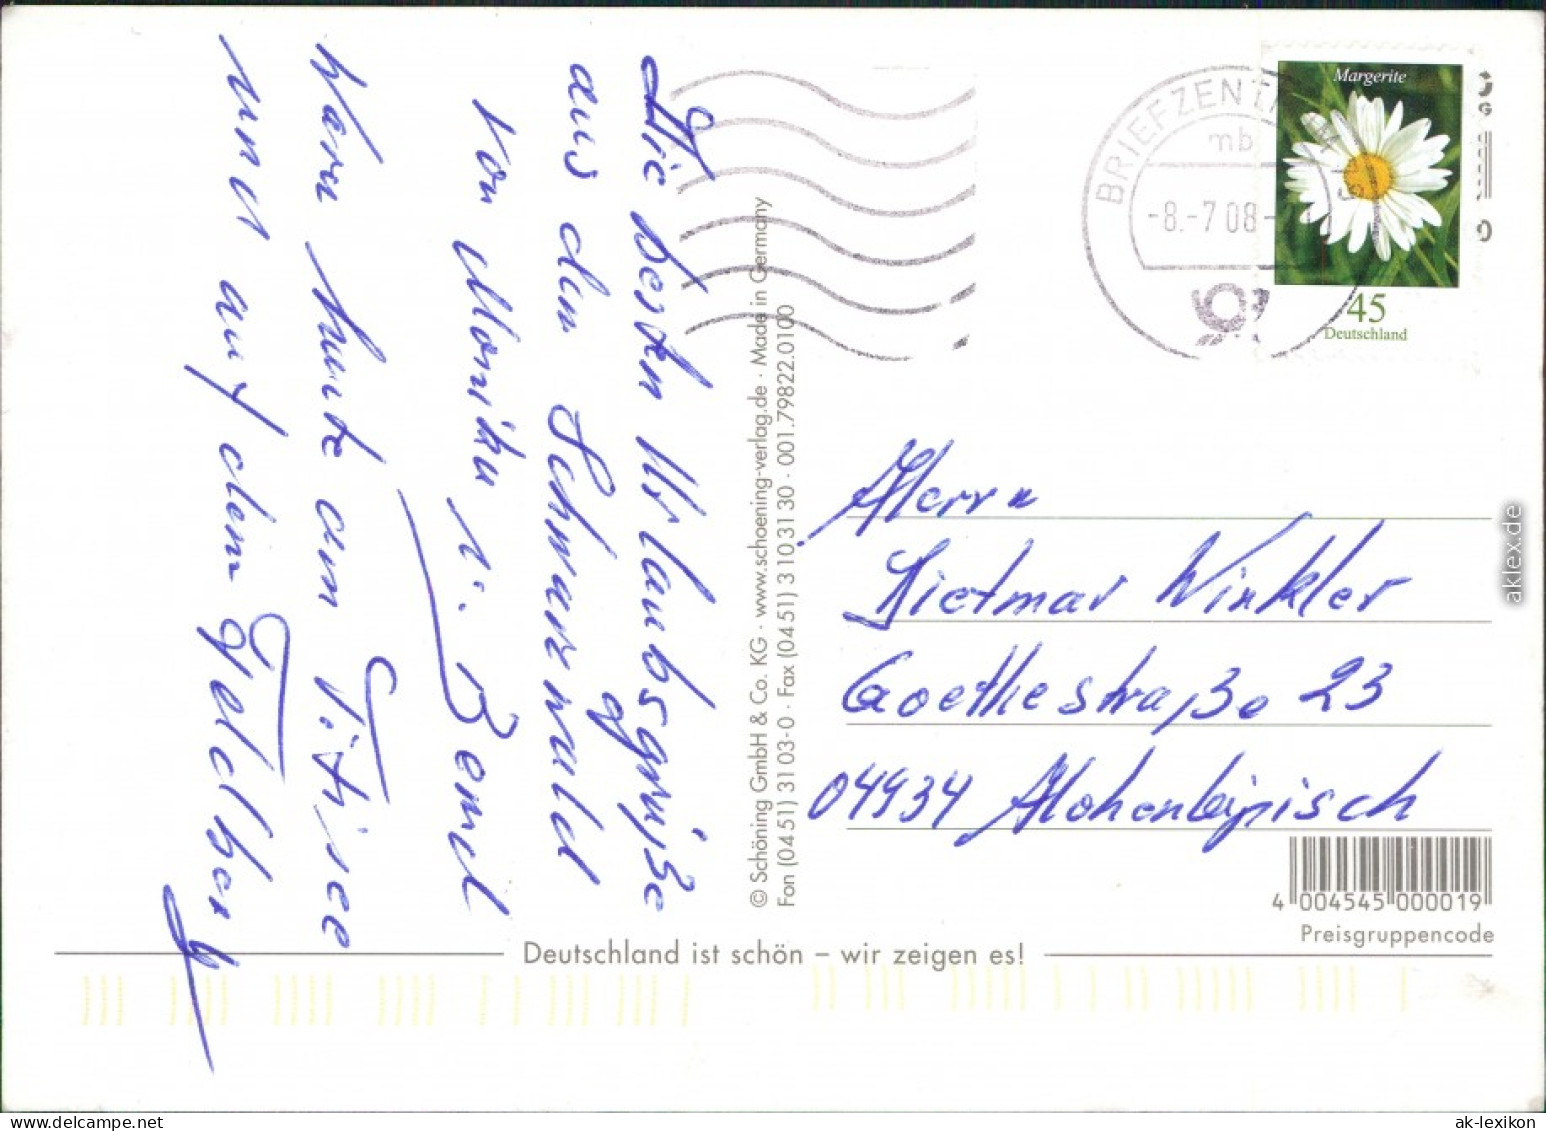 Die besten Urlaubsgrüße
aus dem Schwarzwald
von Monika u. Bernd
Waren heute am Titisee
und auf dem Feldberg
© Schöning GmbH & Co. KG · www.schoening-verlag.de · Made in Germany
Fon (04 51) 31 03-0 · Fax (04 51) 3 10 31 30 · 001.79822.0100
BRIEFZENTRUM
mb
-8.-7 08-
Margerite
45
Deutschland
Herrn
Dietmar Winkler
Goethestraße 23
04934 Hohenleipisch
4 004545 000019
Preisgruppencode
Deutschland ist schön – wir zeigen es!
aklex.de
ak-lexikon